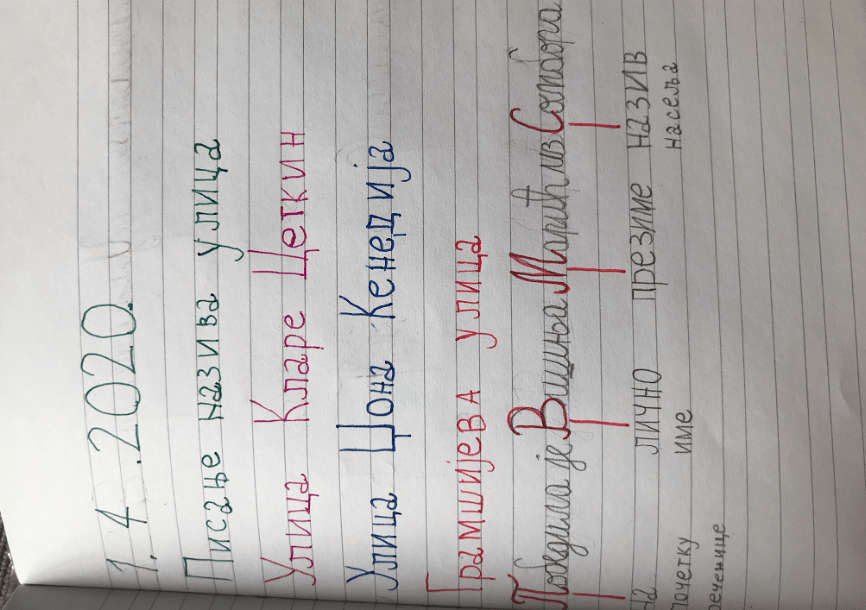 1. 4. 2020.
Писање назива улица
Улица Кларе Цеткин
Улица Џона Кенедија
Грамшијева улица
Победила је Вишња Марић из Сомбора.
на лично презиме назив
почетку име насеља
реченице